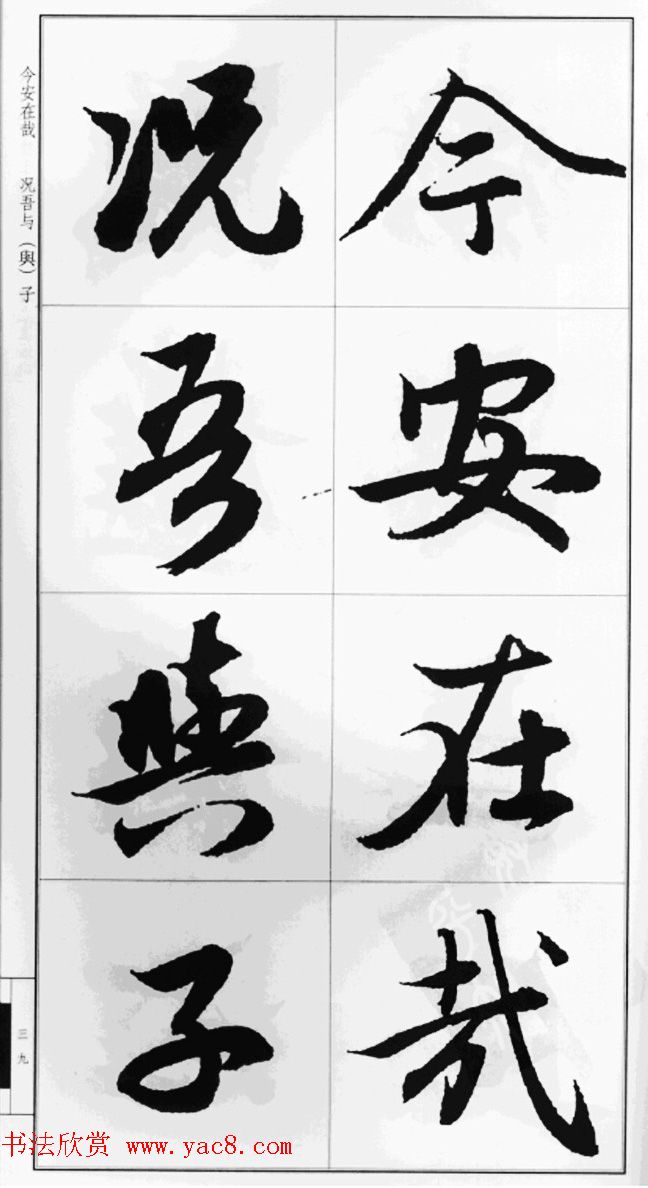 今安在哉
况吾與子
今安在哉 况吾与（與）子
三九
书法欣赏 www.yac8.com